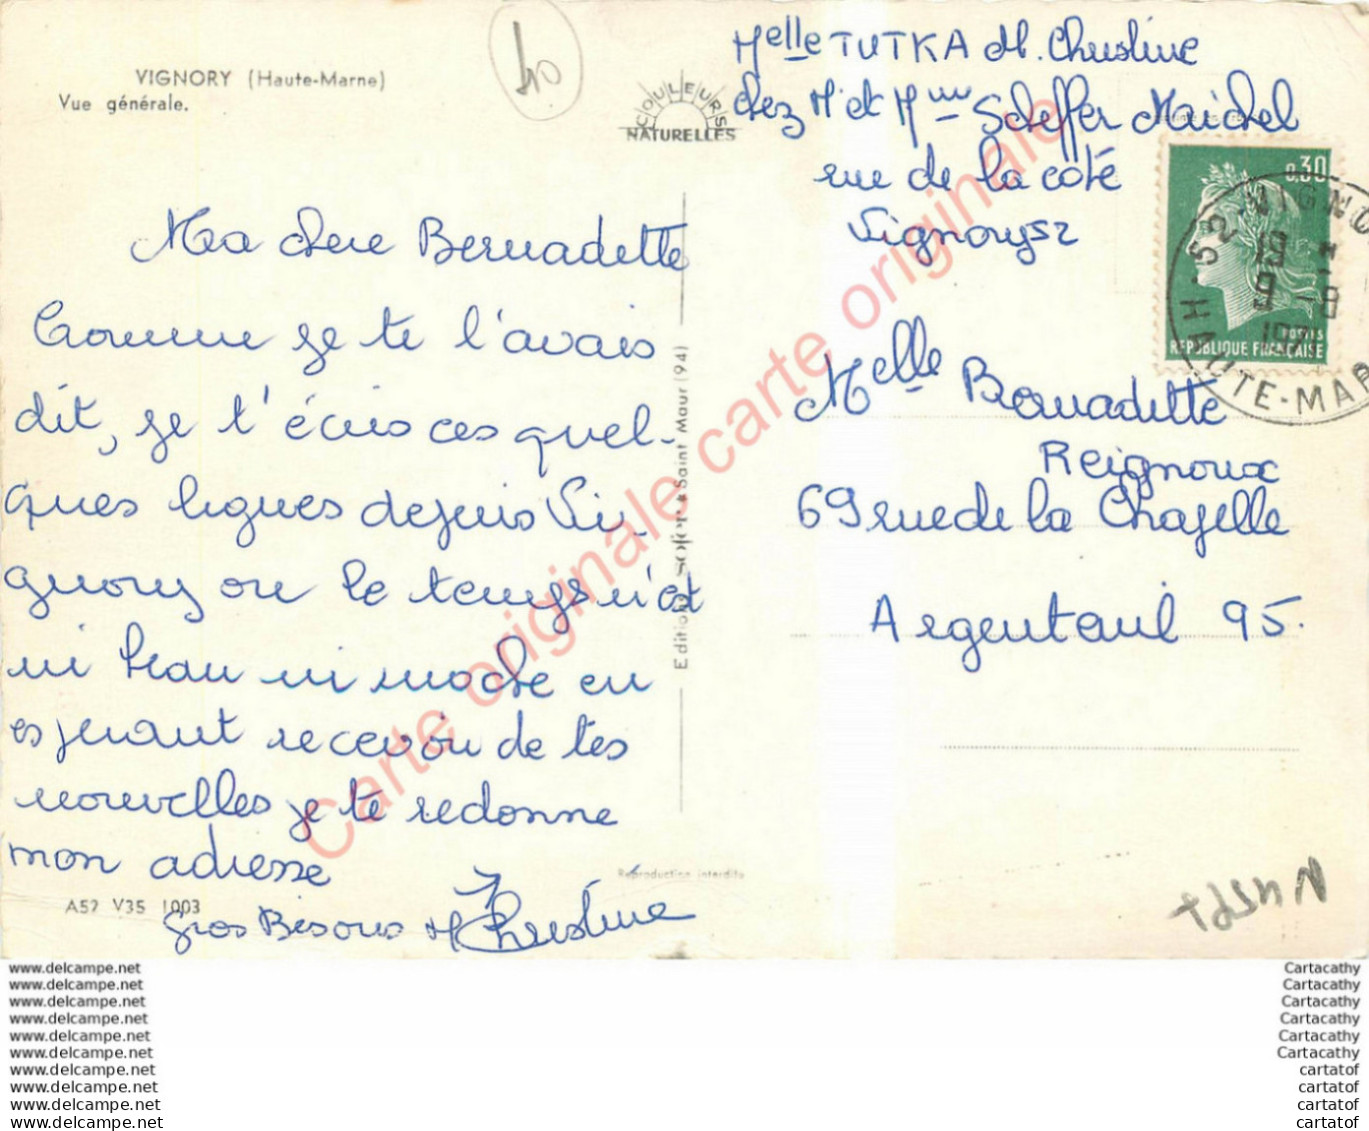 VIGNORY (Haute-Marne)
Vue générale.
40
COULEURS
NATURELLES
Melle TUTKA M. Christine
chez Mr et Mme Scheffer Maichel
rue de la coté
Vignory 52
0,30
POSTES
REPUBLIQUE FRANÇAISE
52 VIGNO
19 H
9 -8
HAUTE-MAR
Ma chere Bernadette
Comme je te l'avais
dit, je t'écris ces quel-
ques lignes depuis Vi-
gnory ou le temps n'est
ni beau ni moche en
esperant recevoir de tes
nouvelles je te redonne
mon adresse
Gros Bisous M Christine
Editions SOFER Saint Maur (94)
Melle Bernadette
Reignoux
69 rue de la Chapelle
Argenteuil 95.
Reproduction interdite
A52 V35 1003
Carte originale carte originale
www.delcampe.net
www.delcampe.net
www.delcampe.net
www.delcampe.net
www.delcampe.net
www.delcampe.net
www.delcampe.net
www.delcampe.net
www.delcampe.net
www.delcampe.net
Cartacathy
Cartacathy
Cartacathy
Cartacathy
Cartacathy
Cartacathy
cartatof
cartatof
cartatof
cartatof